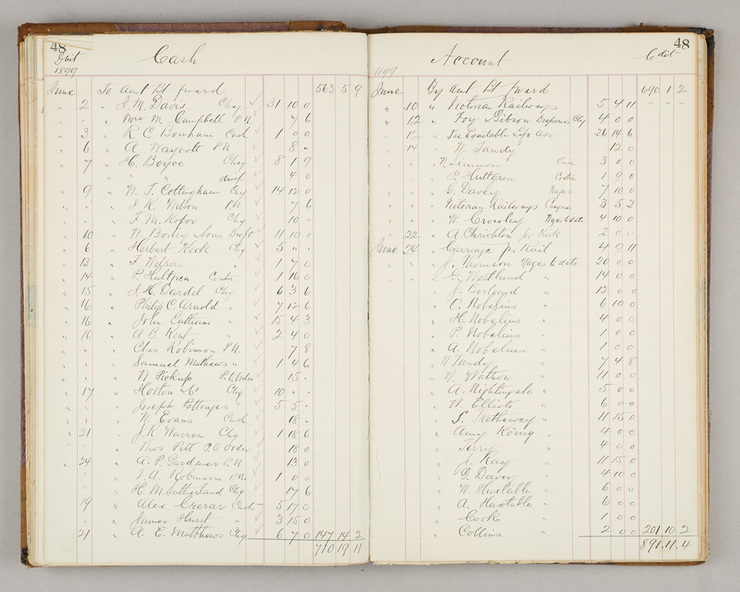 48
Cash
Debit
1899
June To amt Bt forward 563 5 9
" 2 " J. M. Davis Chq 21 10 0
" " Mrs M. Campbell P.N. 7 6
" 3 " R C Bonham Cash 1 0 0
" 6 " A Waycott P.N. 8 -
" 7 " H. Boyce Chq 8 1 9
" " 4 0
" 9 " W. T. Cottingham Chq 14 12 0
" " J. R. Wilson P.N. 7 6
" " F. M. Chq 10 -
" 10 " W. Boney Sons Draft 11 10 0
" 6 " Herbert Kock Chq 5 " -
" 13 " F. Wilson " 1 7 0
" 14 " P. Hultgren 1 16 0
" 15 " J. H. Dardel Chq 6 3 6
" 16 " Philip C Arnold " 7 12 6
" 16 " John " 15 4 3
" 16 " A B Kent " 2 4 0
" " Chas Robinson P.N. 7 8
" " Samuel Mathews " 1 4 6
" " W Pickup P.O. Order 15 -
" 17 " Horton & Co Chq 10 -
" " Joseph Pottenger " 5 5 -
" " W. Evans Cash 18 -
" 21 " J. R. Warren Chq 1 18 6
" " Thos Pett P.O. Order 18 0
" 24 " A. P. Gardiner P.N. 13 0
" " J. A. Robinson P.N. 1 0 0
" " H. M. Sutherland Chq 17 6
" 19 " Alex Crerar Cash 5 17 0
" " James Hurst " 3 15 0
" 21 " A. E. Matthews Chq 6 7 0 147 14 2
710 19 11
48
Account
Credit
1899
June By amt Bt forward 690 1 2
" 10 " Victorian Railways 5 4 11
" 12 " Foy & Gibson Chq 4 0 0
" 12 " The Equitable Life Ass 26 14 6
" 14 " W. Tandy 12 0
" N. Simmons Cash 3 0 0
" P. Hultgren 1 9 0
" G. Davey Wages 7 10 0
" Victorian Railways 3 5 2
" W. Crowley Wages to date 4 10 0
" 22 " A Chrichton pr Kirk 2 0 0
June 24 " Carriage pr Rail 4 9 11
" J. Thomson Wages to date 20 0 0
" G. Westlund " 14 0 0
" J. " 12 0 0
" O. Nobelius " 6 10 0
" H. Nobelius " 4 0 0
" P. Nobelius " 1 0 0
" A. Nobelius " 1 0 0
" W Tandy " 7 4 8
" W Watson " 11 0 0
" A. Nightingale " 5 0 0
" W. Elliott " 6 0 0
" S. Tretheway " 11 15 0
" Amy König " 4 0 0
" Terry " 4 0 0
" J. Kay " 11 15 0
" G. Davey " 4 10 0
" W Huxtable " 6 0 0
" A. Huxtable " 6 0 0
" Cook " 1 0 0
" Collins " 2 0 0 201 10 2
891 11 4